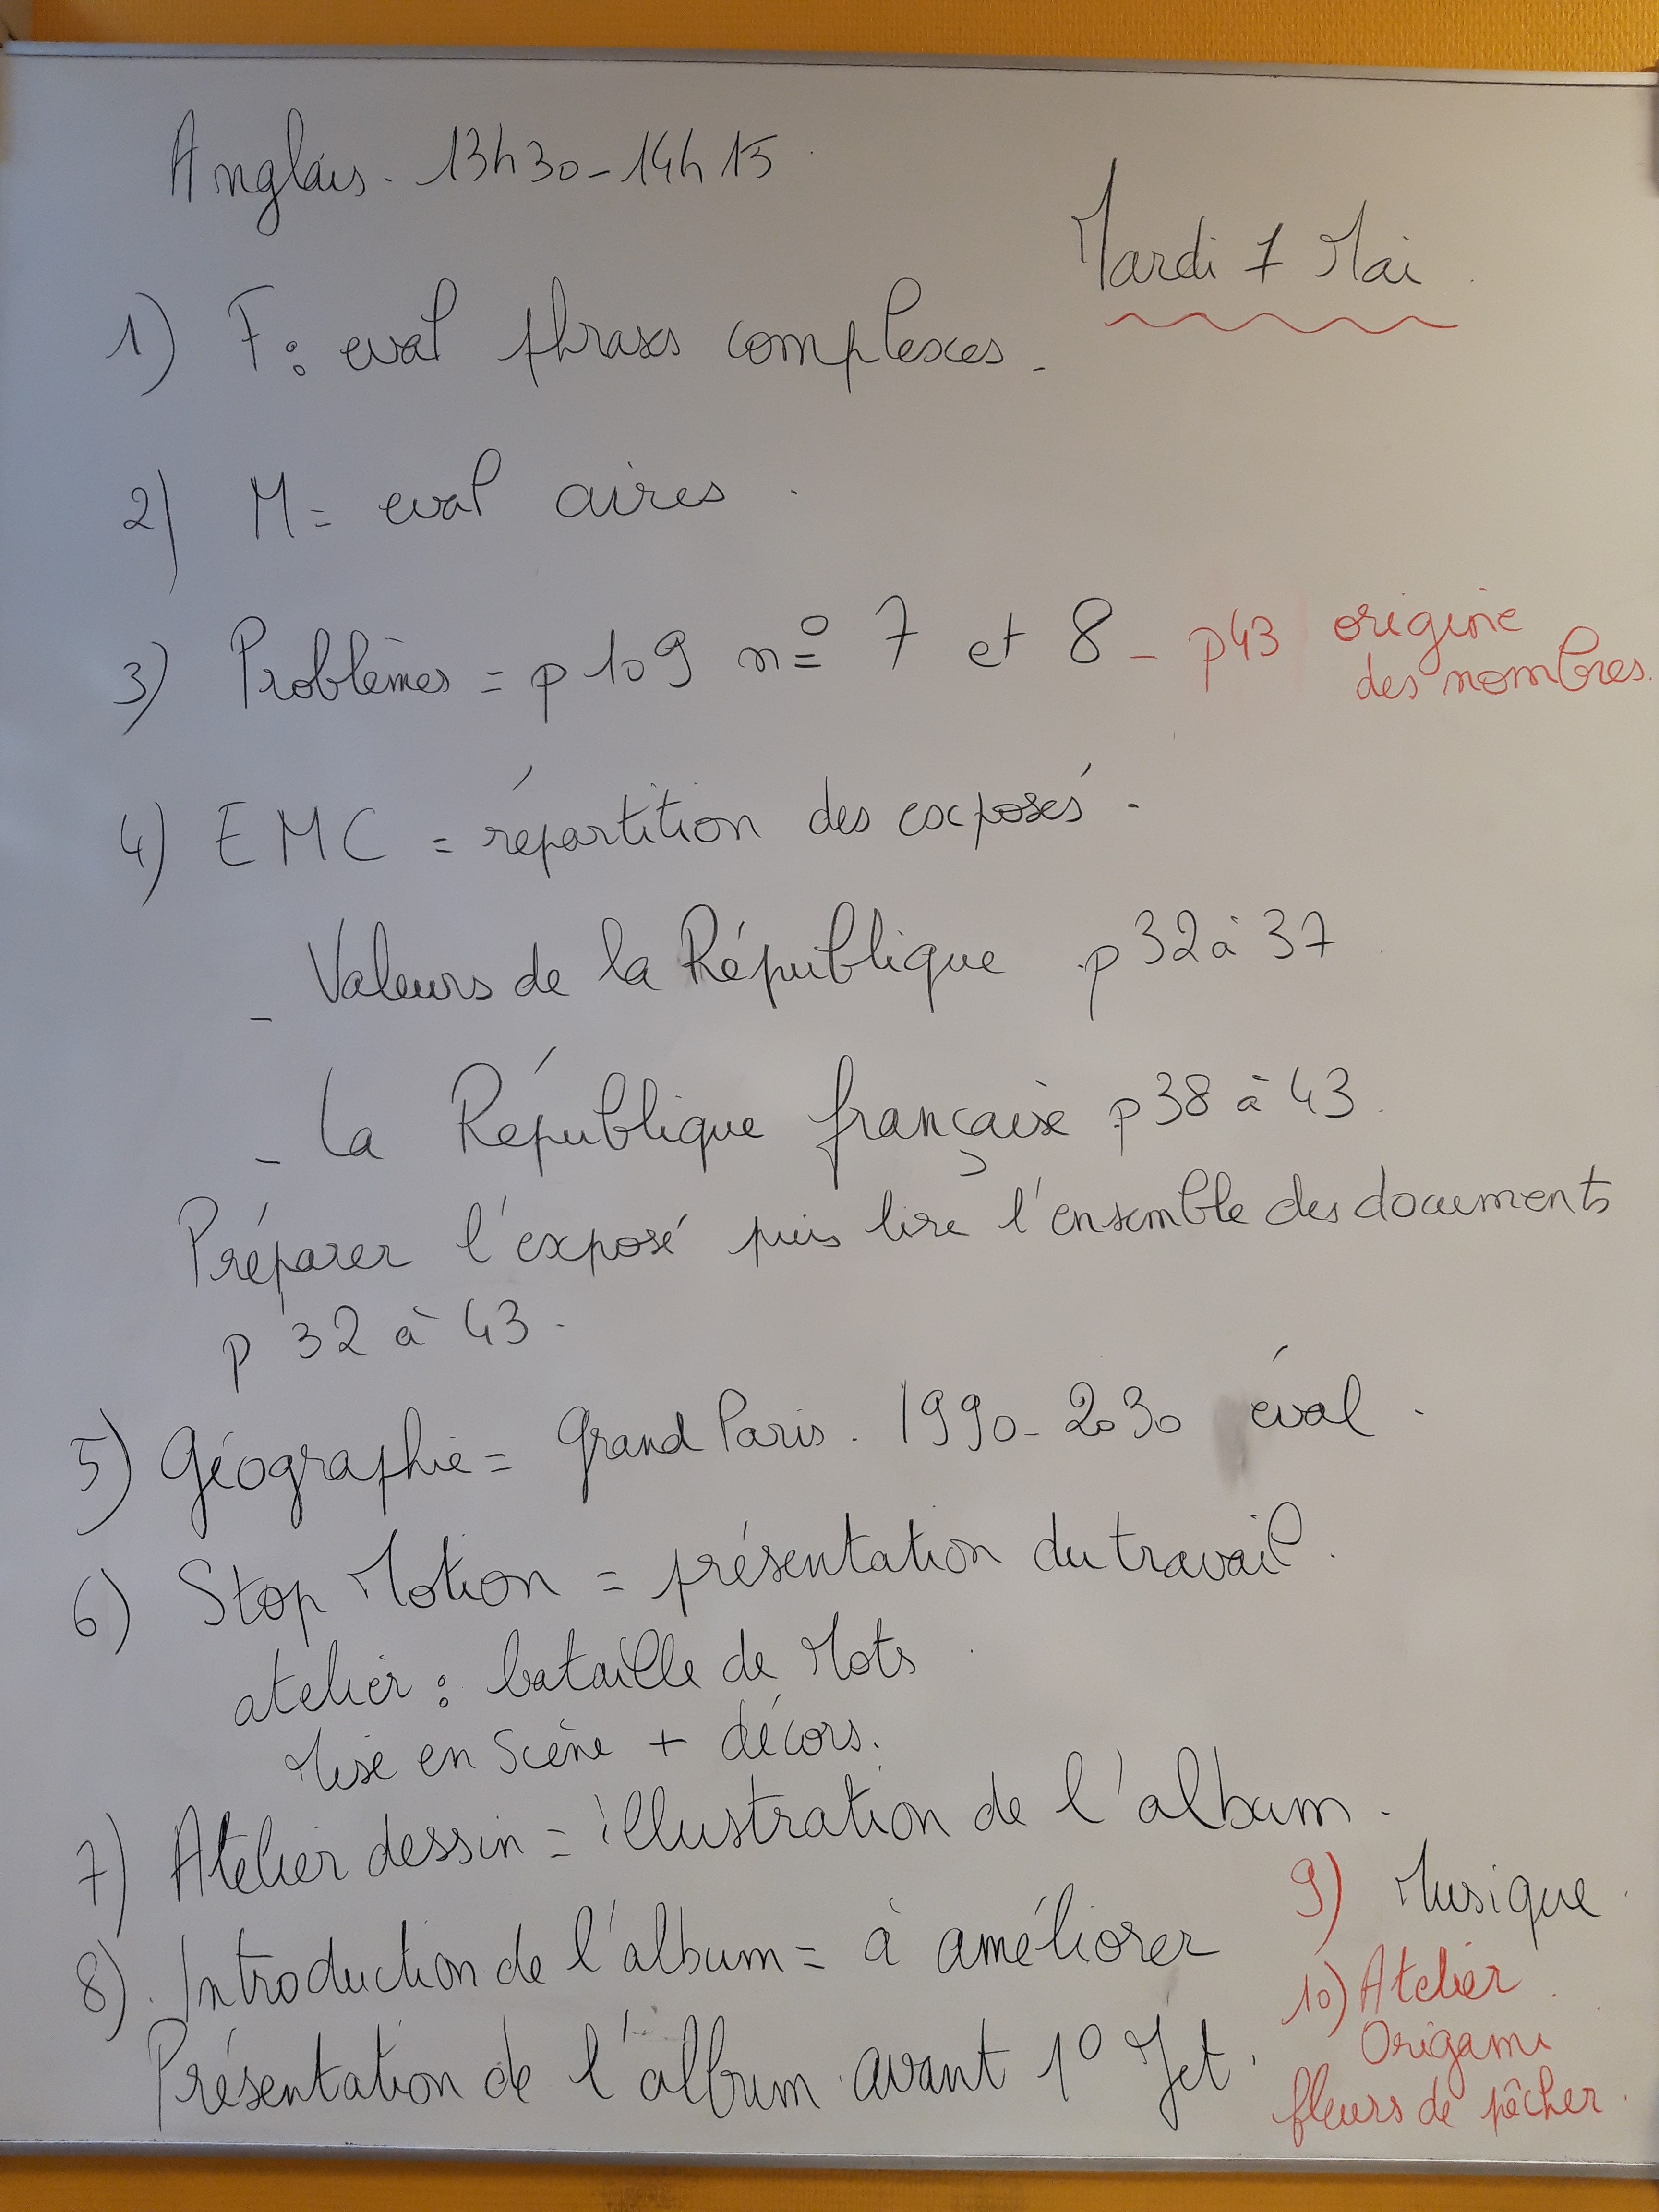 Anglais. 13h30-14h15
Mardi 7 Mai
1) F: eval phrases complexes.
2) M= eval aires.
3) Problèmes = p 109 n° 7 et 8 - p43 origine
des nombres.
4) EMC = répartition des exposés.
- Valeurs de la République p 32 à 37
- La République française p 38 à 43.
Préparer l'exposé puis lire l'ensemble des documents
p 32 à 43.
5) Géographie = Grand Paris. 1990-2030 éval.
6) Stop Motion = présentation du travail.
atelier : bataille de Mots
Mise en Scène + décors.
7) Atelier dessin = illustration de l'album.
8). Introduction de l'album = à améliorer
Présentation de l'album avant 1° Jet.
9) Musique.
10) Atelier
Origami
fleurs de pêcher.